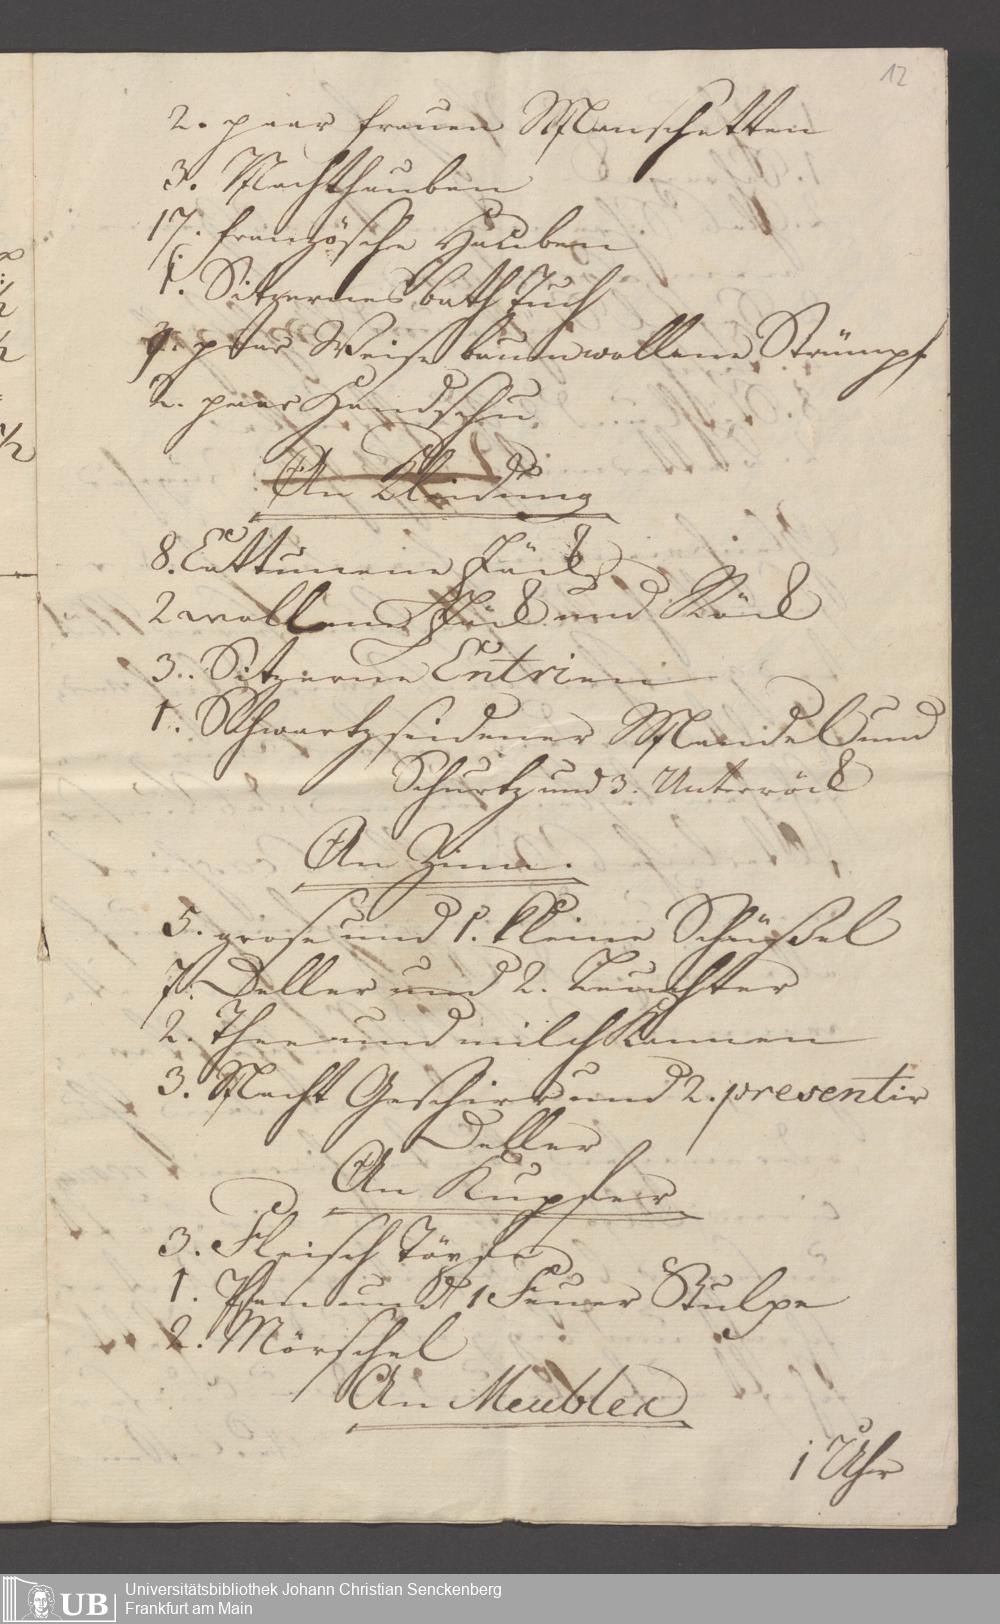 12
2. paar frauen Manschetten
3. Nachthauben
17. französche Hauben
1. Sitzernes bath Tuch
9. paar Weise baumwollene Strümpf
2. paar Handschu
An Kleidung
8. Cattunene Jäck
2 wollene Jäck und Röck
3. Sitzerne Entrien
1. Schwartzseidener Mandel und
Schurtz und 3. Unterröck
An Zinn.
5. grose und 1. kleine Schüßel
7. Deller und 2. Leuchter
2. Thee und milch Kannen
3. Nacht Geschirr und 2. presentir
Deller
An Kupfer
3. Fleisch Töpfe
1. Pfan und 1 Feuer Stulpe
2. Mörschel
An Meublen
1 Uhr
UB
Universitätsbibliothek Johann Christian Senckenberg
Frankfurt am Main